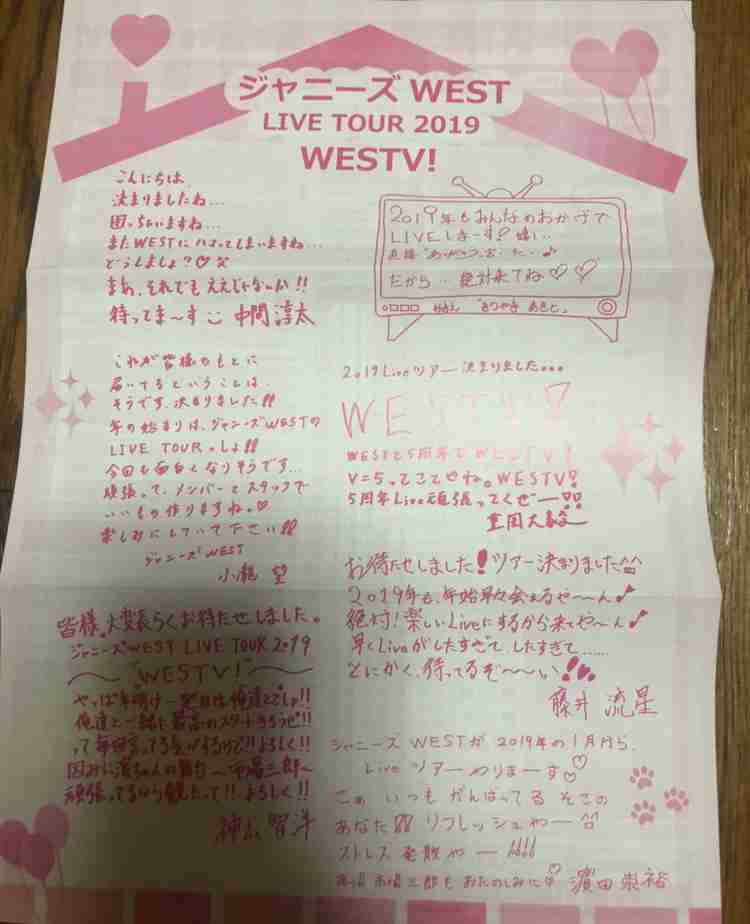 ジャニーズ WEST
LIVE TOUR 2019
WESTV!
こんにちは
決まりましたね…
困っちゃいますね…
またWESTにハマってしまいますね…
どうしましょ?♡
まあ、それでもええじゃないか!!
待ってま〜す 中間淳太
2019年もみんなのおかげで
LIVEしまーす!嬉し..
直接"ありがとう"言いた..♪
だから.. 絶対来てね♡♡
きりやま あきと
これが皆様のもとに
届いてるということは、
そうです、決まりました!!
年の始まりは、ジャニーズWESTの
LIVE TOURでしょ!!
今回も面白くなりそうです…
頑張って、メンバーとスタッフで
いいもの作りますね。♡
楽しみにしていて下さい!!
ジャニーズWEST
小瀧 望
2019Liveツアー決まりました...
WESTV!
WESTと5周年でWESTV!
V=5ってことやね。WESTV!
5周年Live頑張ってくぜー!!
重岡大毅
お待たせしました!ツアー決まりました^^
2019年も、年始早々会えるぜ〜ん♪
絶対!楽しいLiveにするから来てや〜ん♪
早くLiveがしたすぎて、したすぎて……
とにかく、待ってるぞ〜〜い!
藤井 流星
皆様。大変長らくお待たせしました。
ジャニーズWEST LIVE TOUR 2019
〜"WESTV!"〜
やっぱ年明け一発目は俺達とでしょ!!
俺達と一緒に最高のスタートきろうぜ!!
って毎回言ってる気がするけど!!よろしく!!
因みに濵ちゃんの舞台〜市場三郎〜
頑張ってるから観たって!!よろしく!!
神山 智洋
ジャニーズ WESTが 2019年の1月から、
Live ツアーやりまーす♡
さぁ いつも がんばってる そこの
あなた!! リフレッシュやー^^
ストレス 発散やー!!!!
市場三郎もおたのしみに♡ 濵田崇裕